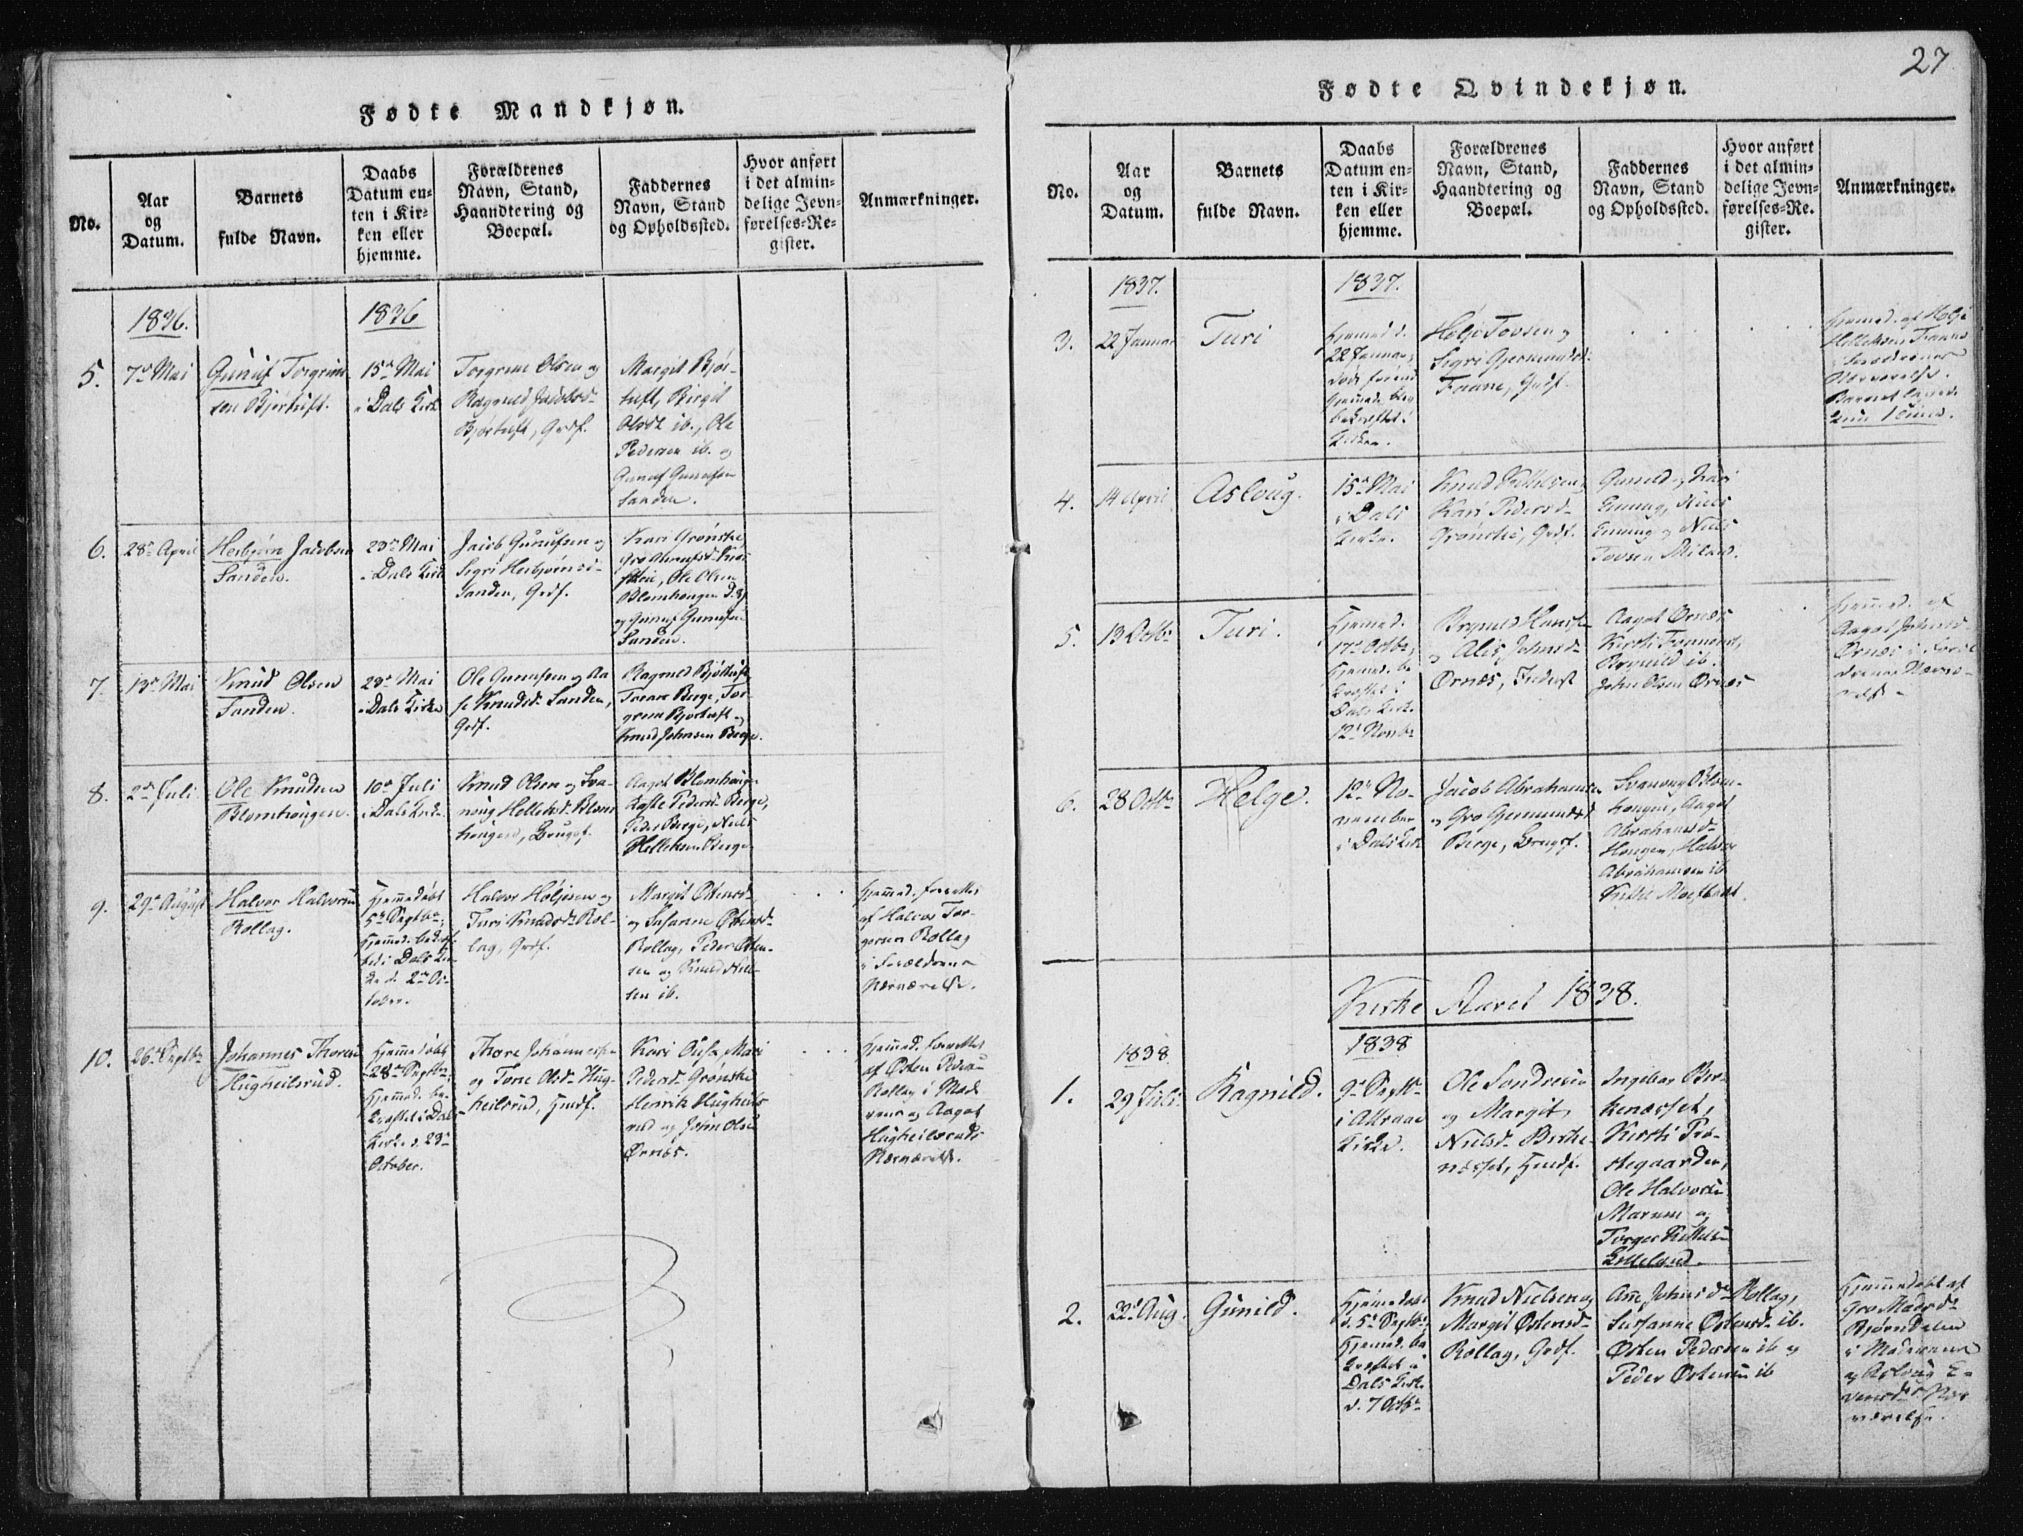 Fødte Mandkjøn.
No.
Aar
og
Datum.
Barnets
fulde Navn.
Daabs
Datum en-
ten i Kir-
ken eller
hjemme.
Forældrenes
Navn, Stand,
Haandtering og
Boepæl.
Faddernes
Navn, Stand
og Opholdssted.
Hvor anført
i det almin-
delige Jevn-
førelses-Re-
gister.
Anmærkninger.
1836.
1836
5.
7de Mai
Gunuf Torgrim
sen Bjørtuft.
15de Mai
i Dals Kirke
Torgrim Olsen og
Ragnild Jacobsd.
Bjørtuft, Grdf.
Margit Bjør-
tuft, Birgit
Olsdt ib., Ole
Pedersen ib. og
Gunuf Gunufsen
Sanden.
6.
28de April
Herbjørn Jacobsen
Sanden.
23de Mai
i Dals Kirke
Jacob Gunufsen og
Sigri Herbjørnsd.
Sanden, Grdf.
Kari Grønskei
Ole Olsen
Blomhougen
og Gunuf Gunufsen
Sanden.
7.
13de Mai
Knud Olsen
Sanden.
23de Mai
i Dals Kirke
Ole Gunufsen og Aa-
se Knudsd. Sanden,
Grdf.
Ragnild Bjørtuft
Torane Berge, Tor-
grim Bjørtuft og
Knud Johnsen Berge.
8.
2den Juli
Ole Knudsen
Blomhougen.
10de Juli
i Dals Kirke
Knud Olsen og Sva-
noug Helleksd. Blom
hougen, Brugsf.
Aagot Blomhoug
Aaste Pedersd. Berge,
Peder Berge, Niels
Helleksen Berge
9.
29de August
Halvor Halvorsen
Rollag.
Hjemmedøbt
5te Septbr.
Hjemmed. bekræf-
tet i Dals Kir-
ke d. 2den Oc-
tober.
Halvor Holjesen og
Turi Knudsd. Rol-
lag, Grdf.
Margit Østensd.
og Susanne Østensd.
Rollag, Peder Østen-
sen og Knud Niel-
sen ib.
Hjemmed. forrettet
af Halvor Tor-
gersen Rollag
i Forældrenes
Nærværelse.
10.
26de Septbr.
Johannes Thoresen
Hugheilsrud.
Hjemmedøbt
28de Septbr.
Hjemmed. be-
kræftet i Dals
Kirke d. 23de
October.
Thore Johannessen
og Tone Olsd. Hug-
heilsrud, Huusf.
Kari Mari
Pedersd. Grønskei
Henrik Hugheils
rud og John Olsen
Ørnæs.
Hjemmed. forrettet
af Østen Peders.
Rollag i Mod-
erens og Aagot
Hugheilsruds
Nærværelse.
27
Fødte Qvindekjøn.
No.
Aar
og
Datum.
Barnets
fulde Navn.
Daabs
Datum en-
ten i Kir-
ken eller
hjemme.
Forældrenes
Navn, Stand,
Haandtering og
Boepæl.
Faddernes
Navn, Stand
og Opholdssted.
Hvor anført
i det almin-
delige Jevn-
førelses-Re-
gister.
Anmærkninger.
1837.
1837.
3.
22 Januar
Turi
Hjemmed. d.
22 Januar,
døde førend
Hjemmed. blev
bekræftet i
Kirken.
Holje Tovsen og
Sigri Gjermundsd.
Traane, Grdf.
Hjemmed. af Holje
Helleksen Traane
i Forældrenes
Nærværelse.
Barnet levede
kun 1 Time.
4.
14 April
Asloug.
15de Mai
i Dals
Kirke.
Knud Kittelsen og
Kari Pedersd.
Grønskei, Grdf.
Gunild og Kari
Enning, Niels
Enning og Niels
Tovsen Miland.
5.
13 Octbr.
Turi.
Hjemmed.
17de Octbr.,
Hjemmed. be-
kræftet i
Dals Kirke
12te Novbr.
Brynild Hansen
og Alis Johnsd.
Ørnæs, Inderst
Aagot Ørnæs
Kirsti
Brynild ib.
John Olsen Ørnæs
Hjemmed. af
Aagot Johnsd.
Ørnæs i Foræl-
drenes Nærvæ-
relse.
6.
28 Octbr.
Helge.
12te No-
vember
i Dals Kirke
Jacob Abrahamsen
og Gro Gjermundsd.
Berge, Brugsf.
Svanoug Blom-
hougen, Aagot
Abrahamsd.
Haugen, Halvor
Abrahamsen ib.
Kirke Aaret 1838.
1838.
1838
1.
29 Juli
Ragnild.
9de Septbr.
i Attraae
Kirke.
Ole Sondresen
og Margit
Nielsd. Birke-
næsset, Huusf.
Ingebor Bir-
kenæsset,
Kirsti Præ-
stegaarden,
Ole Halvors.
Marum og
Torger Kittelsen
2.
22de Aug.
Gunild.
Hjemmedøbt
d. 5te Septbr.
Hjemmed. be-
kræftet i
Dals Kirke
d. 7 Octbr.
Knud Nielsen og
Margit Østensd.
Rollag, Grdf.
Ane Johnsdr. Rollag,
Susanne Østensd. ib.
Østen Pedersen ib. og
Peder Østensen ib
Hjemmedøbt af
Gro Madsd.
Bjørndalen
i Moderens
og Asloug E-
vensd. Nær-
værelse.